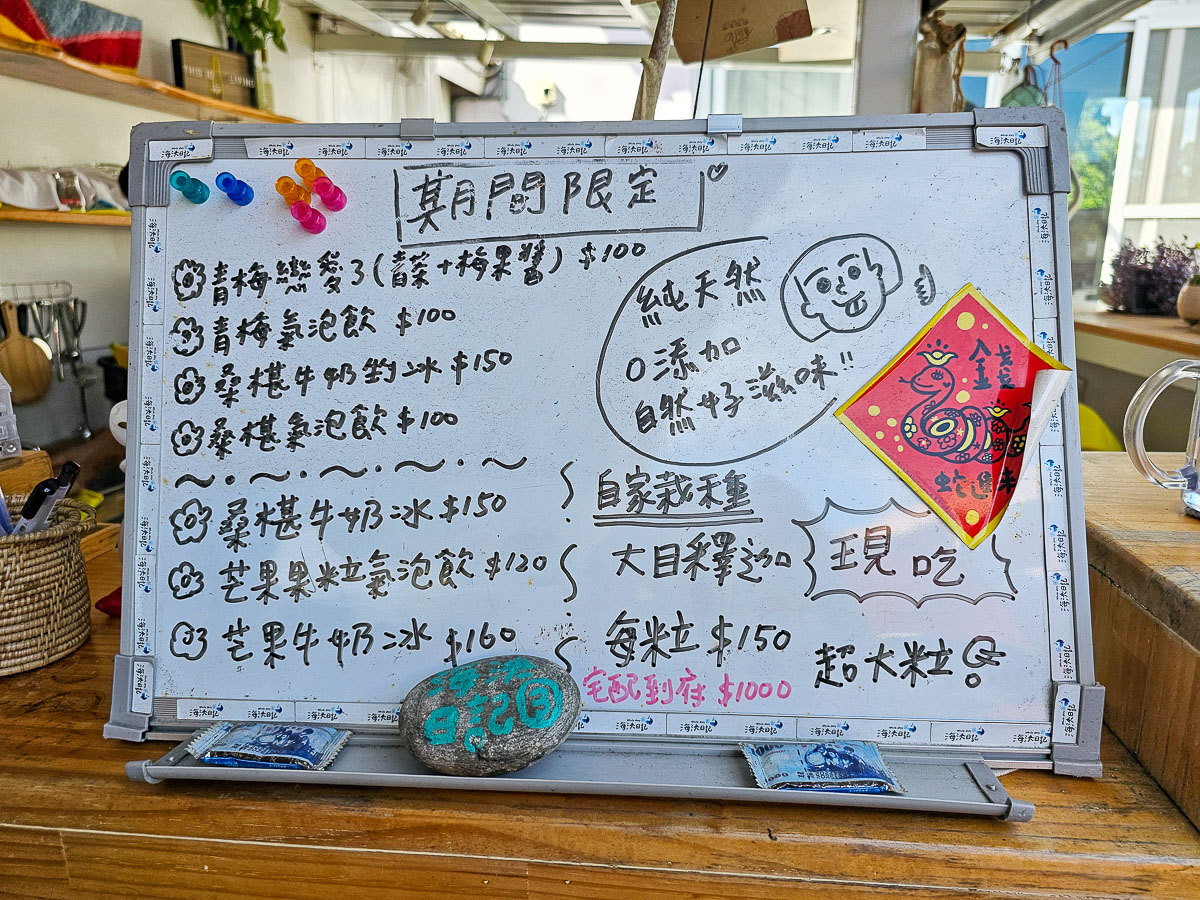 期間限定
青梅戀愛了(青菜+梅果醬) $100
青梅氣泡飲 $100
桑椹牛奶鈞冰 $150
桑椹氣泡飲 $100
桑椹牛奶冰 $150
芒果果粒氣泡飲 $120
芒果牛奶冰 $160
純天然
0添加
自然好滋味!!
自家栽種
大目釋迦
現吃
每粒 $150
超大粒
宅配到府 $1000
金錢
蛇進來
海汰日記
THIS IS LIVING